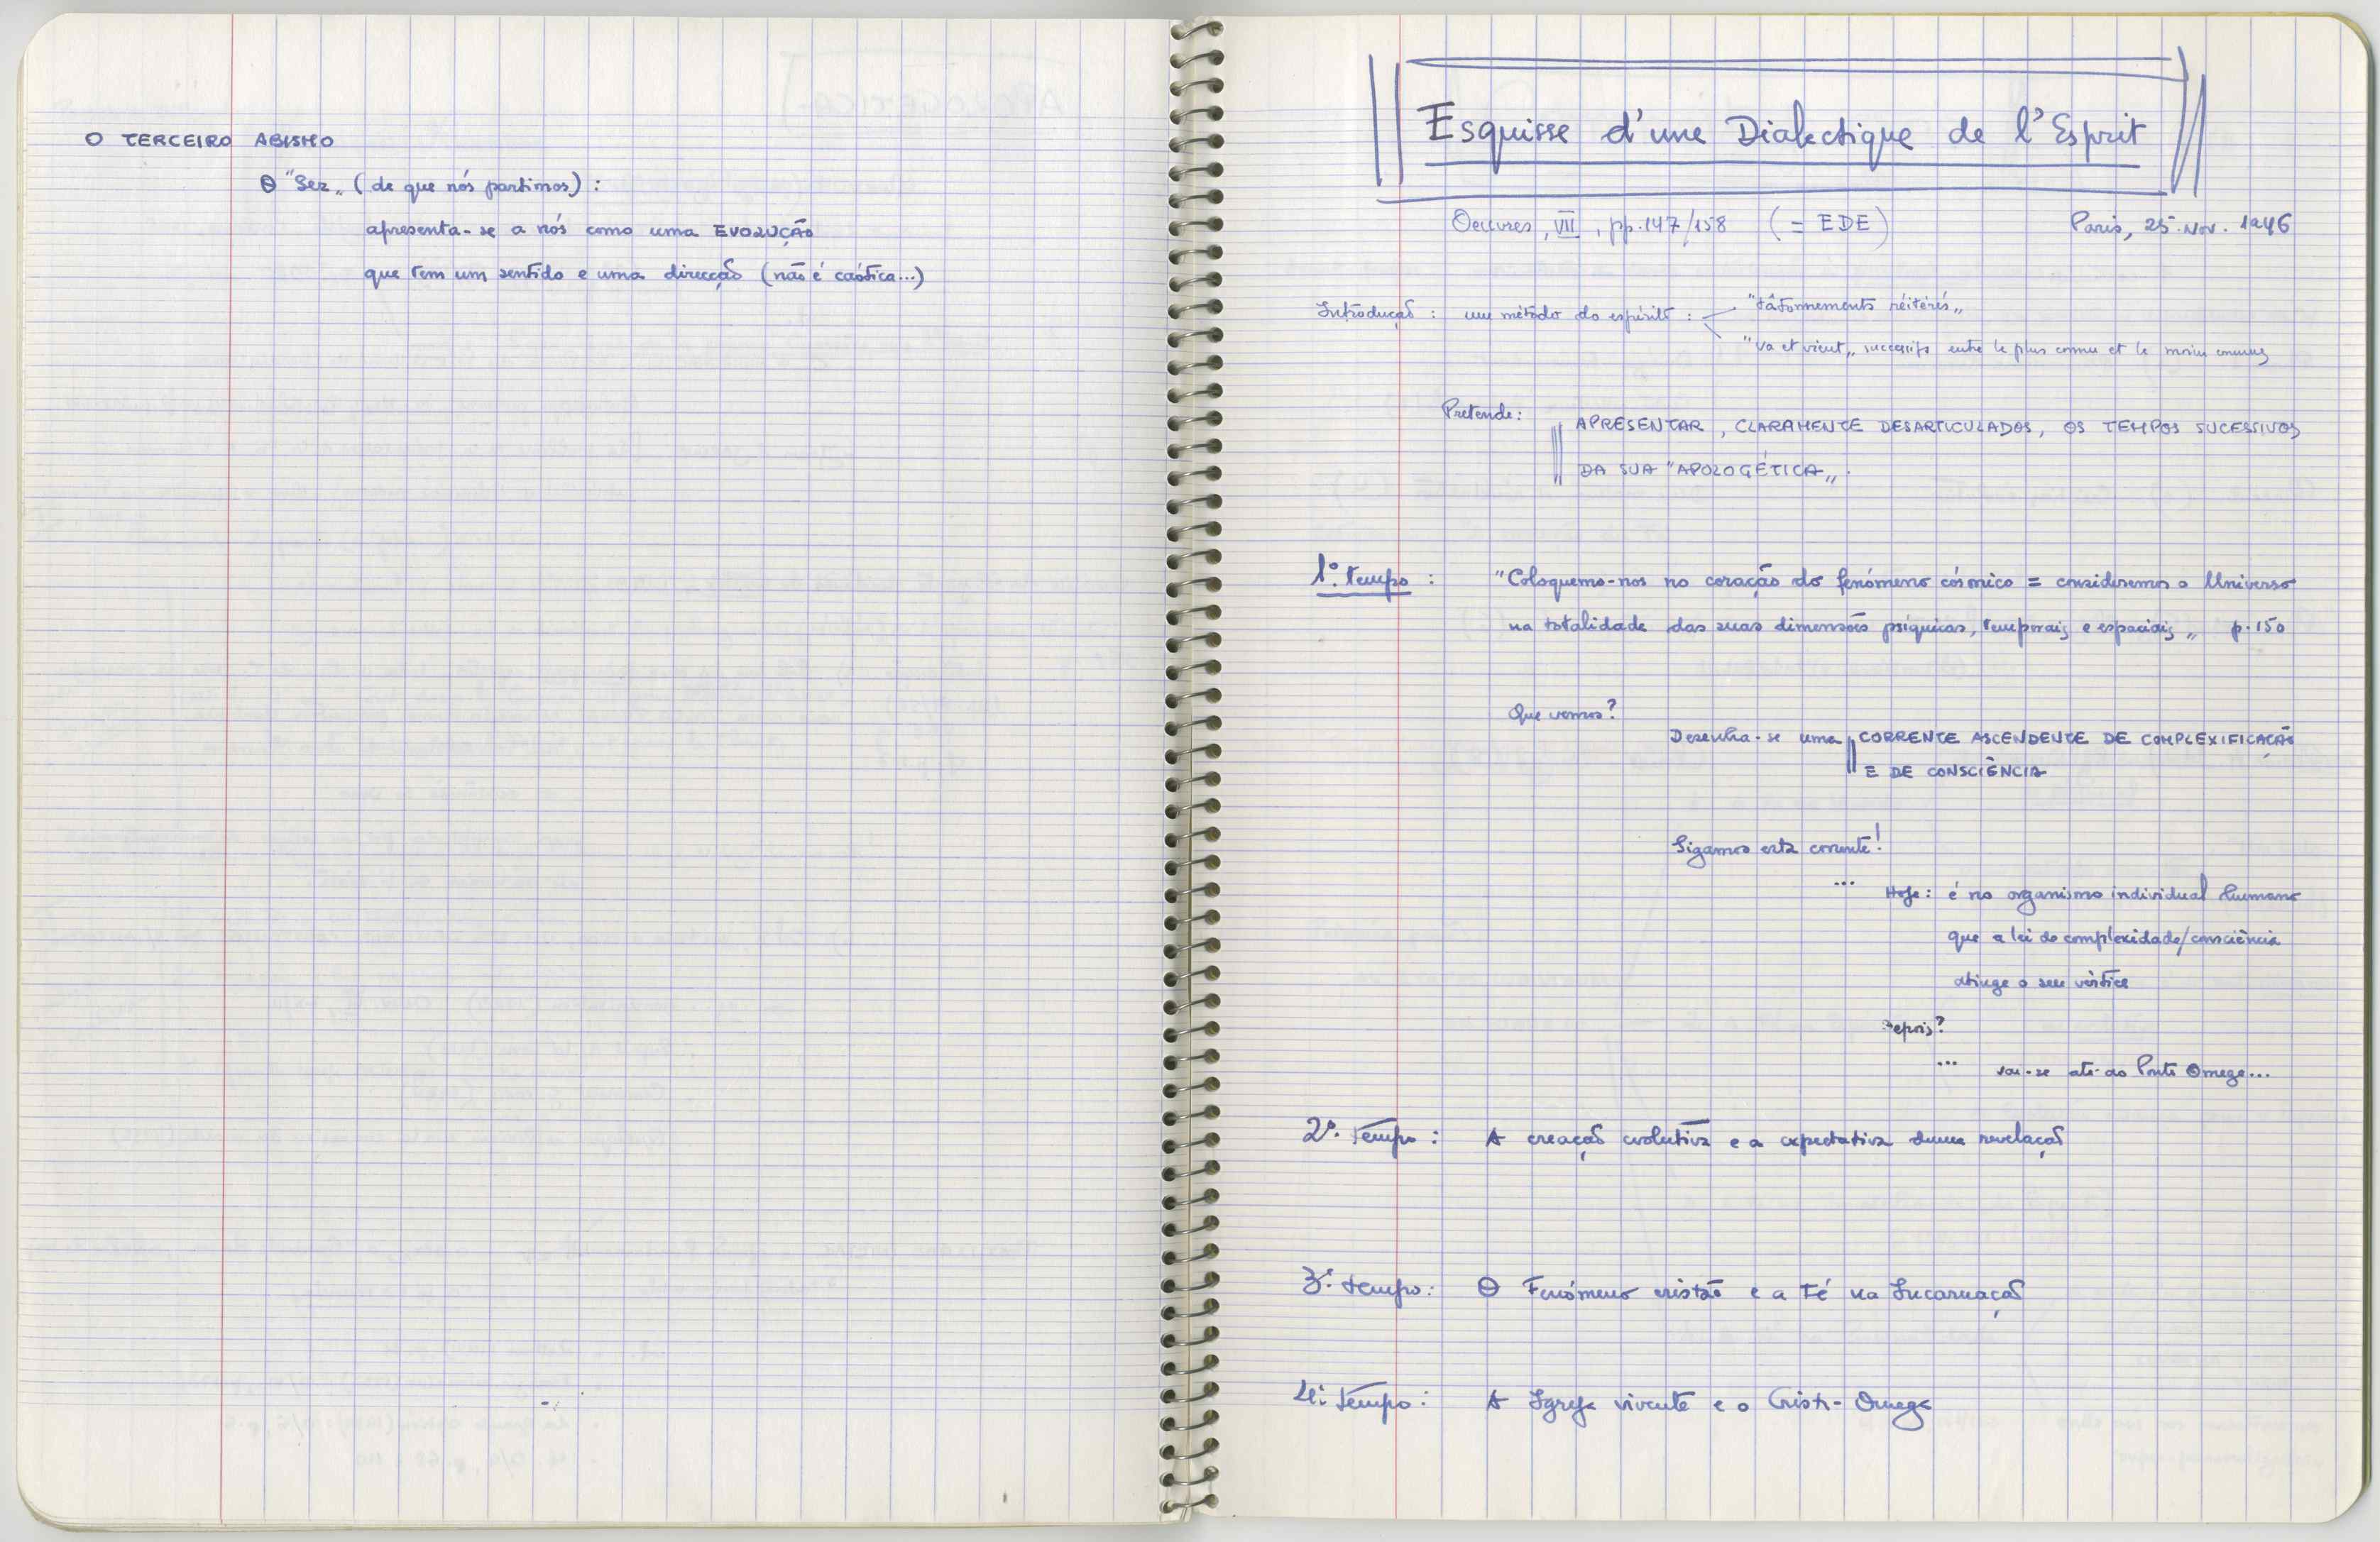 O TERCEIRO ABISMO
O "Ser" (de que nós partimos) :
apresenta-se a nós como uma EVOLUÇÃO
que tem um sentido e uma direcção (não é caótica...)
Esquisse d'une Dialectique de l'Esprit
Oeuvres, VII, pp. 147/158 (= EDE) Paris, 25. Nov. 1946
Introdução : um método do espírito : "tâtonnements réitérés"
"va et vient" successifs entre le plus connu et le moins connu
Pretende:
APRESENTAR, CLARAMENTE DESARTICULADOS, OS TEMPOS SUCESSIVOS
DA SUA "APOLOGÉTICA".
1º. tempo : "Coloquemo-nos no coração do fenómeno cósmico = consideremos o Universo
na totalidade das suas dimensões psíquicas, temporais e espaciais" p. 150
Que vemos?
Desenha-se uma CORRENTE ASCENDENTE DE COMPLEXIFICAÇÃO
E DE CONSCIÊNCIA
Sigamos esta corrente!
... Hoje: é no organismo individual humano
que a lei de complexidade/consciência
atinge o seu vértice
Depois?
... vai-se até ao Ponto Omega...
2º. tempo : A creação evolutiva e a expectativa duma revelação
3º. tempo : O Fenómeno cristão e a Fé na Incarnação
4º. tempo : A Igreja vivente e o Cristo-Omega